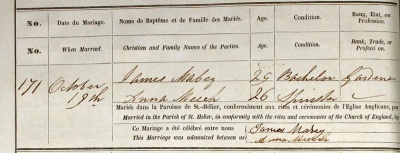 No. Date du Mariage. Noms de Baptême et de Famille des Mariés. Age. Condition. Rang, Etat, ou Profession.
No. When Married. Christian and Family Names of the Parties. Age. Condition. Rank, Trade, or Profession.
171 October James Mabey 29 Bachelor Gardener
19th Anna Meech 26 Spinster
Mariés dans la Paroisse de St. Hélier, conformément aux rites et cérémonies de l'Eglise Anglicane, par
Married in the Parish of St. Helier, in conformity with the rites and ceremonies of the Church of England, by
Ce Mariage a été célébré entre nous James Mabey
This Marriage was solemnized between us Anna